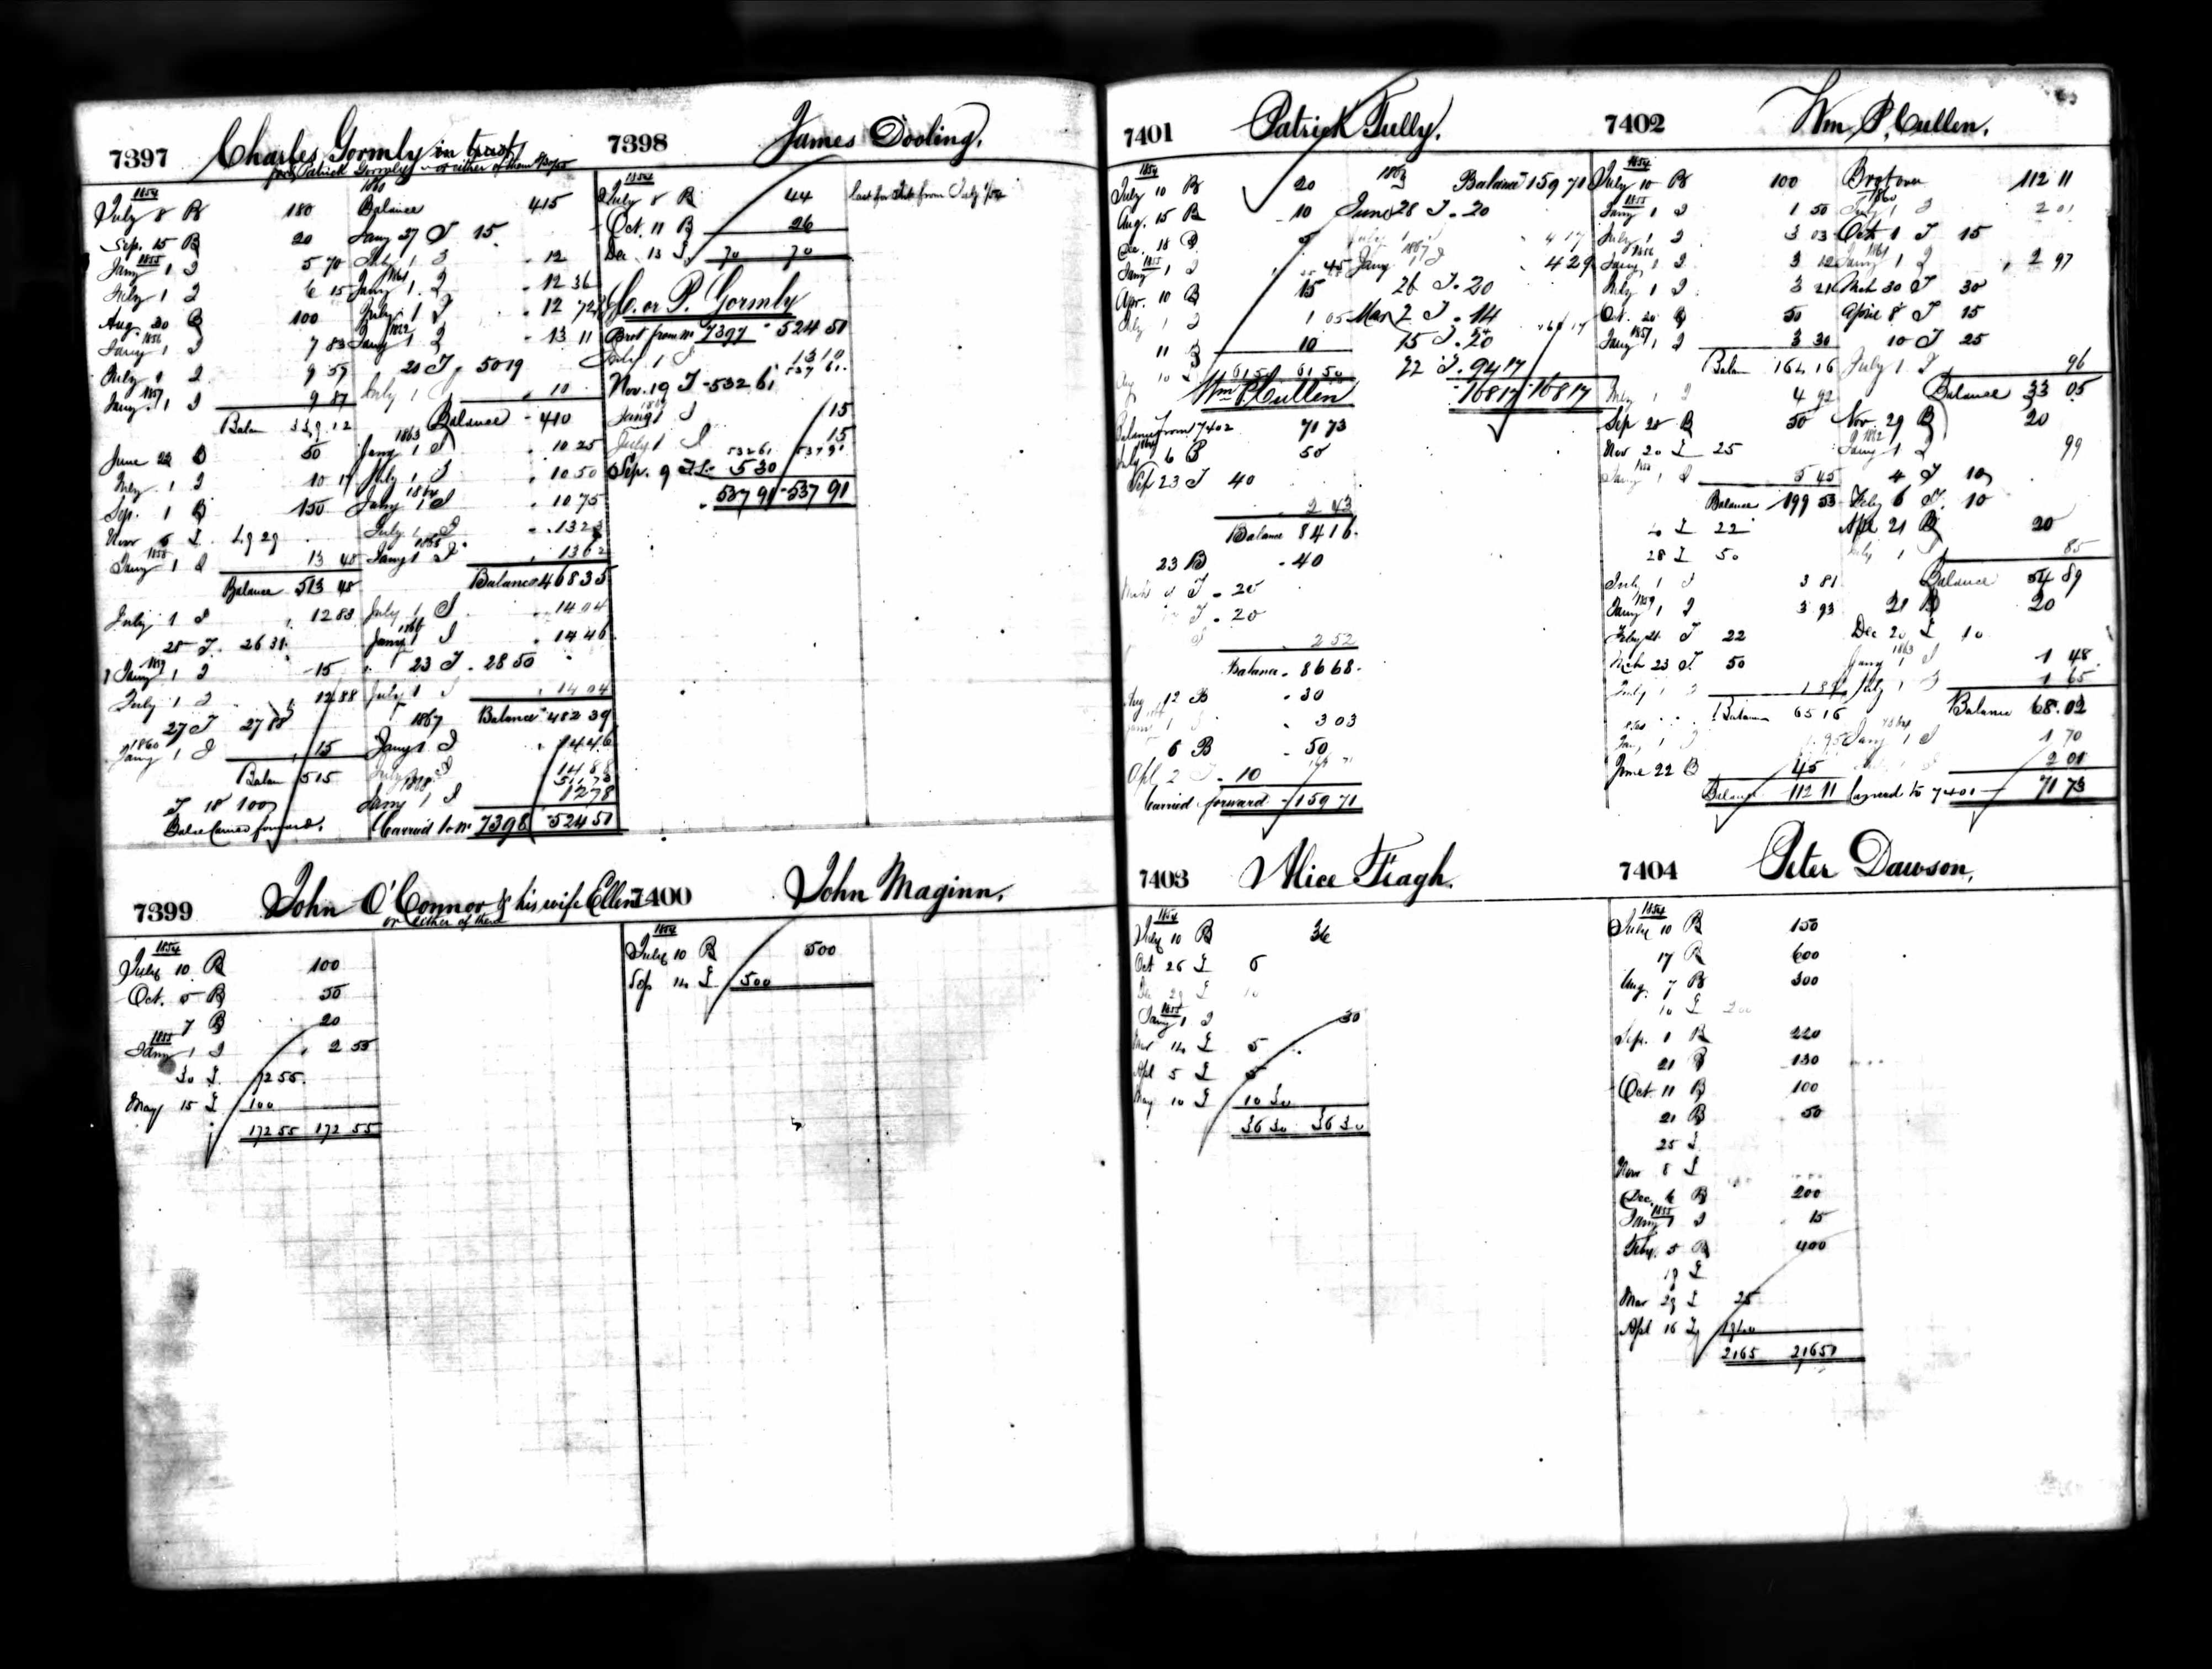 7397 Charles Gormly in trust
for Patrick Gormly or either of them
1854
July 8 B 180
Sep. 15 B 20
1855
Jany 1 I 5 70
July 1 I 6 15
Aug. 30 B 100
1856
Jany 1 I 7 83
July 1 I 9 59
1857
Jany 1 I 9 87
Balan 339 12
June 22 B 50
July 1 I 10 17
Sep. 1 B 150
Novr 6 I 49 29
1858
Jany 1 I 13 48
Balance 513 48
July 1 I 12 83
28 I 26 31
1859
Jany 1 I 15
July 1 I 12 88
27 I 27 88
1860
Jany 1 I 15
Balan 515
I 18 100
Balce Carried forward.
1860
Balance 415
Jany 27 I 15
July 1 I 12
1861
Jany 1 I 12 36
July 1 I 12 72
1862
Jany 1 I 13 11
20 I 50 19
July 1 I 10
Balance 410
1863
Jany 1 I 10 25
July 1 I 10 50
1864
Jany 1 I 10 75
July 1 I 13 23
1865
Jany 1 I 13 62
Balance 468 35
July 1 I 14 04
1866
Jany 1 I 14 46
23 I 28 50
July 1 I 14 04
Balance 482 39
1867
Jany 1 I 14 46
July 1 I 14 88
511 73
1868
Jany 1 I 12 78
Carried to No 7398 524 51
7398 James Dooling.
1854
July 8 B 44
Oct. 11 B 26
Dec 13 I 70 70
C. or P. Gormly
Brot from No 7397 524 51
July 1 I 13 10
537 61
Nov. 19 I 532 61
1869
Jany 1 I 15
July 1 I 15
532 61 537 91
Sep. 9 I 5 30
537 91 537 91
7399 John O'Connor & his wife Ellen
or either of them
1854
July 10 B 100
Oct. 5 B 50
7 B 20
1855
Jany 1 I 2 55
30 I 72 55
May 15 I 100
172 55 172 55
7400 John Maginn.
1854
July 10 B 500
Sep 14 I 500
7401 Patrick Tully.
1854
July 10 B 20
Aug. 15 B 10
Dec. 18 B 5
1855
Jany 1 I 45
Apr. 10 B 15
July 1 I 1 05
11 B 10
61 50 61 50
Wm P Cullen
Balance from 7402 71 73
July 6 B 50
Sep 23 I 40
2 43
Balance 84 16
23 B 40
I 20
I 20
2 52
Balance 86 68
Aug 12 B 30
3 03
6 B 50
Apl 2 I 10
Carried forward 159 71
Balance 159 71
June 28 I 20
July 1 4 17
1867
Jany 1 I 4 29
26 I 20
Mar 2 I 14
15 I 20
22 I 94 17
168 17 168 17
7402 Wm P. Cullen.
1854
July 10 B 100
1855
Jany 1 I 1 50
July 1 I 3 03
1856
Jany 1 I 3 12
July 1 I 3 21
Oct. 20 B 50
1857
Jany 1 I 3 30
Balan 164 16
July 1 I 4 92
Sep 28 B 50
Nov 20 I 25
Jany 1 I 5 45
Balance 199 53
I 22
28 I 50
July 1 I 3 81
1859
Jany 1 I 3 93
Feby 21 I 22
Mch 23 I 50
July 1 I 1 89
Balan 65 16
Jany 1 I 1 95
June 22 B 45
Balance 112 11
Brot over 112 11
1860
July 1 I 2 01
Oct 1 I 15
1861
Jany 1 I 2 97
Mch 30 I 30
April 8 I 15
10 I 25
July 1 I 96
Balance 33 05
Nov. 29 B 20
1862
Jany 1 I 99
4 I 10
Feby 6 I 10
Apl 21 B 20
July 1 I 85
Balance 54 89
21 B 20
Dec 20 I 10
1863
Jany 1 I 1 48
July 1 I 1 65
Balance 68 02
1864
Jany 1 I 1 70
2 01
Carried to 7401 71 73
7403 Alice Feagh.
1854
July 10 B 36
Oct 26 I 6
Dec 29 I 10
1855
Jany 1 I 30
Mar 14 I 5
Apl 5 I 5
May 10 I 10 30
36 30 36 30
7404 Peter Dawson.
1854
July 10 B 150
17 B 600
Aug. 7 B 300
10 I 200
Sep. 1 B 220
21 B 130
Oct. 11 B 100
21 B 50
25 I
Novr 8 I
Dec. 6 B 200
1855
Jany 1 I 15
Feby. 5 B 400
19 I
Mar 29 I 25
Apl 16 I 1940
2165 2165